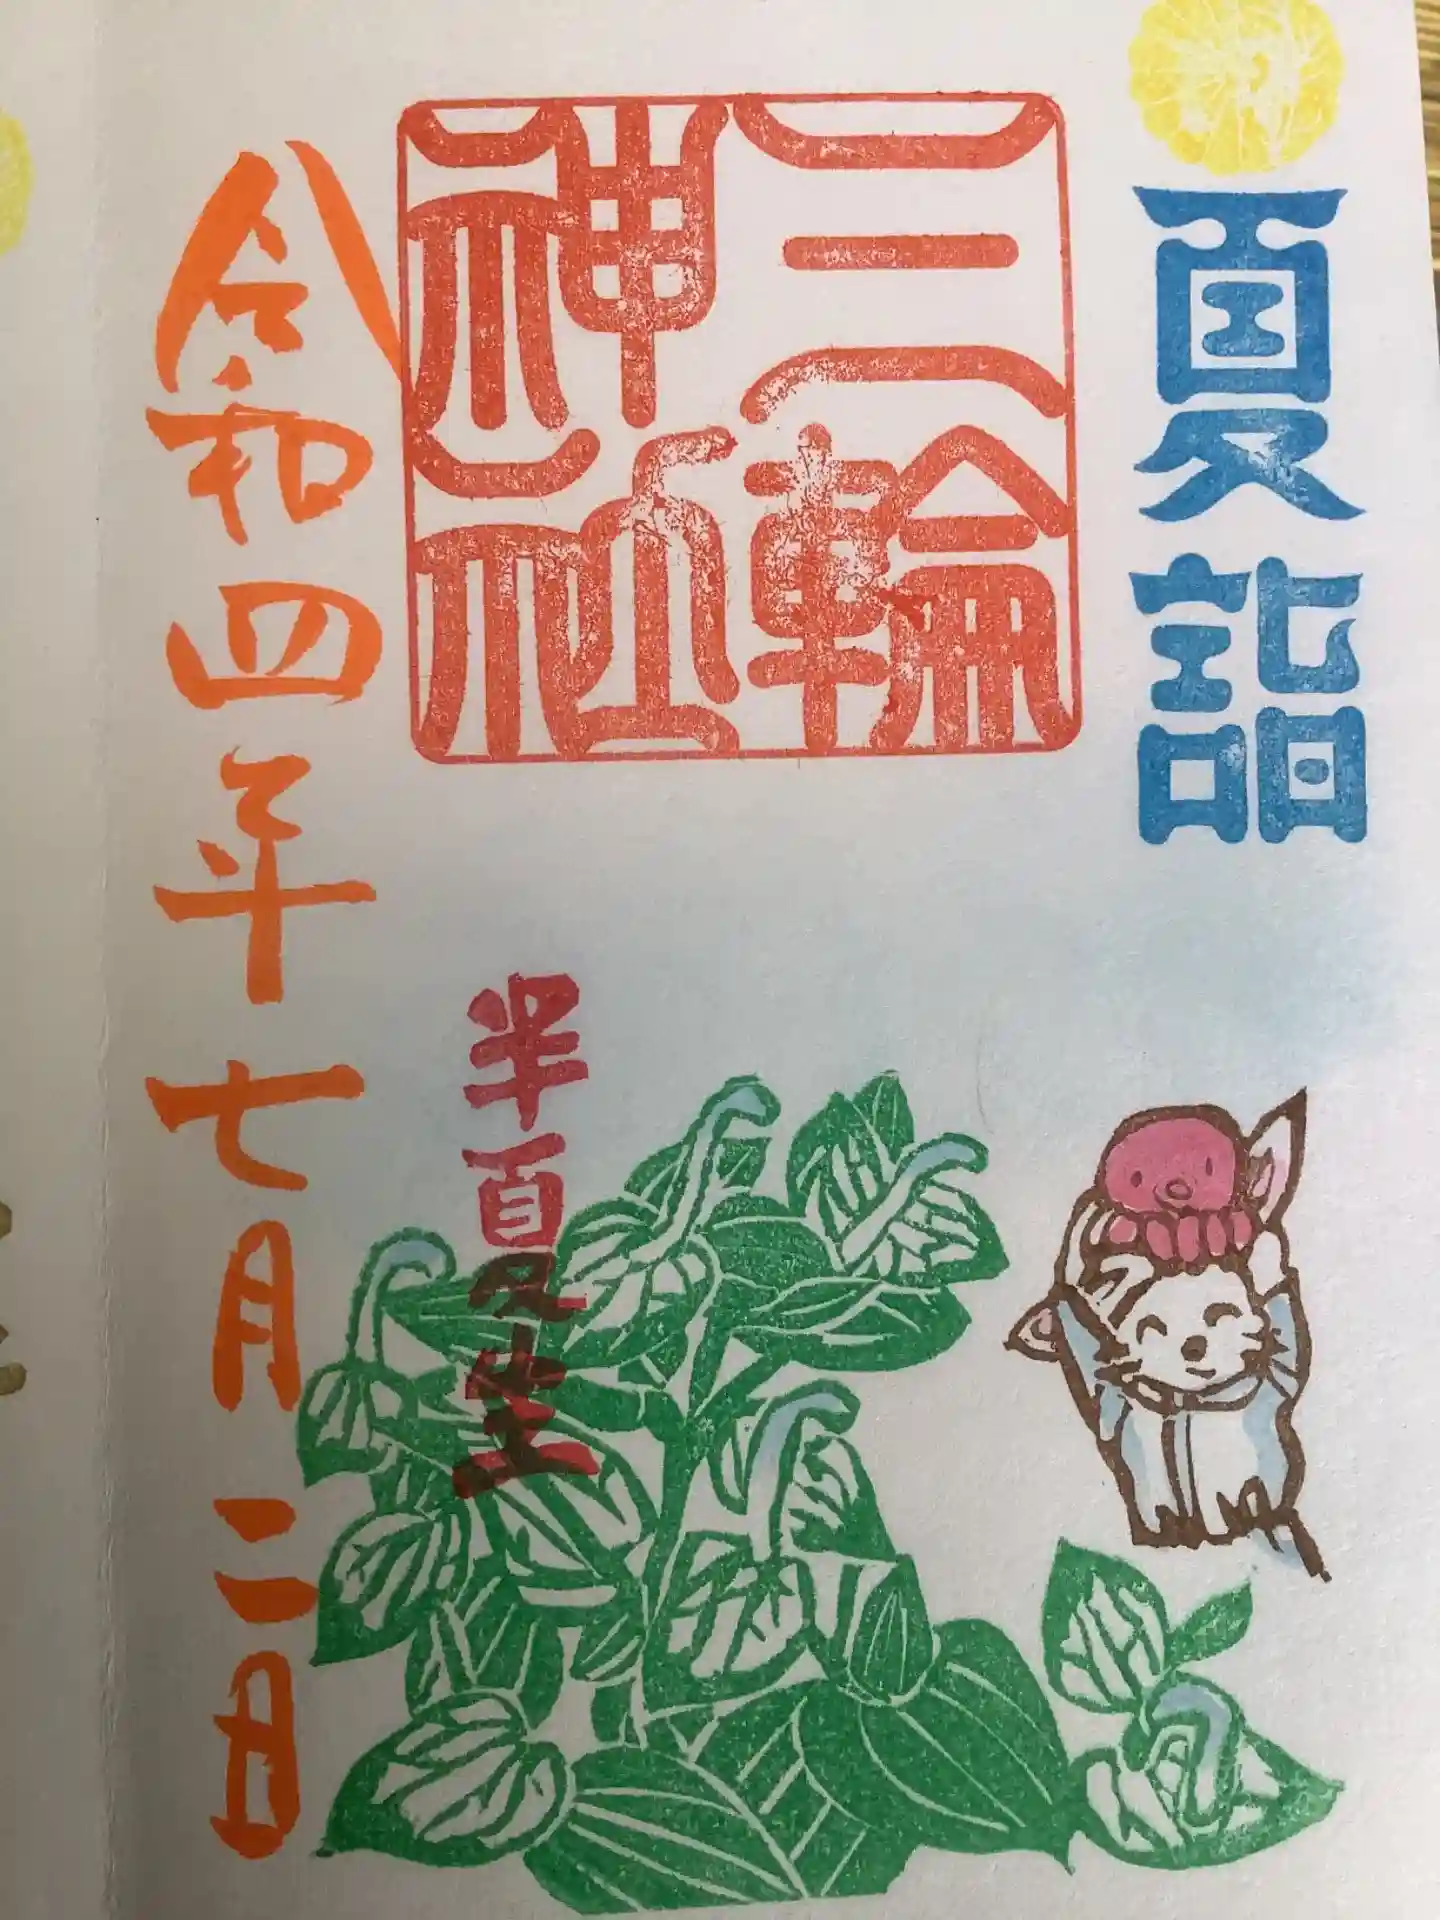 夏詣
三輪神社
半夏生
令和四年七月二日